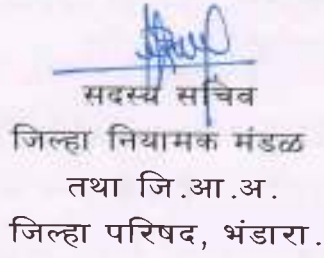 सदस्य सचिव
जिल्हा नियामक मंडळ
तथा जि.आ.अ.
जिल्हा परिषद, भंडारा.